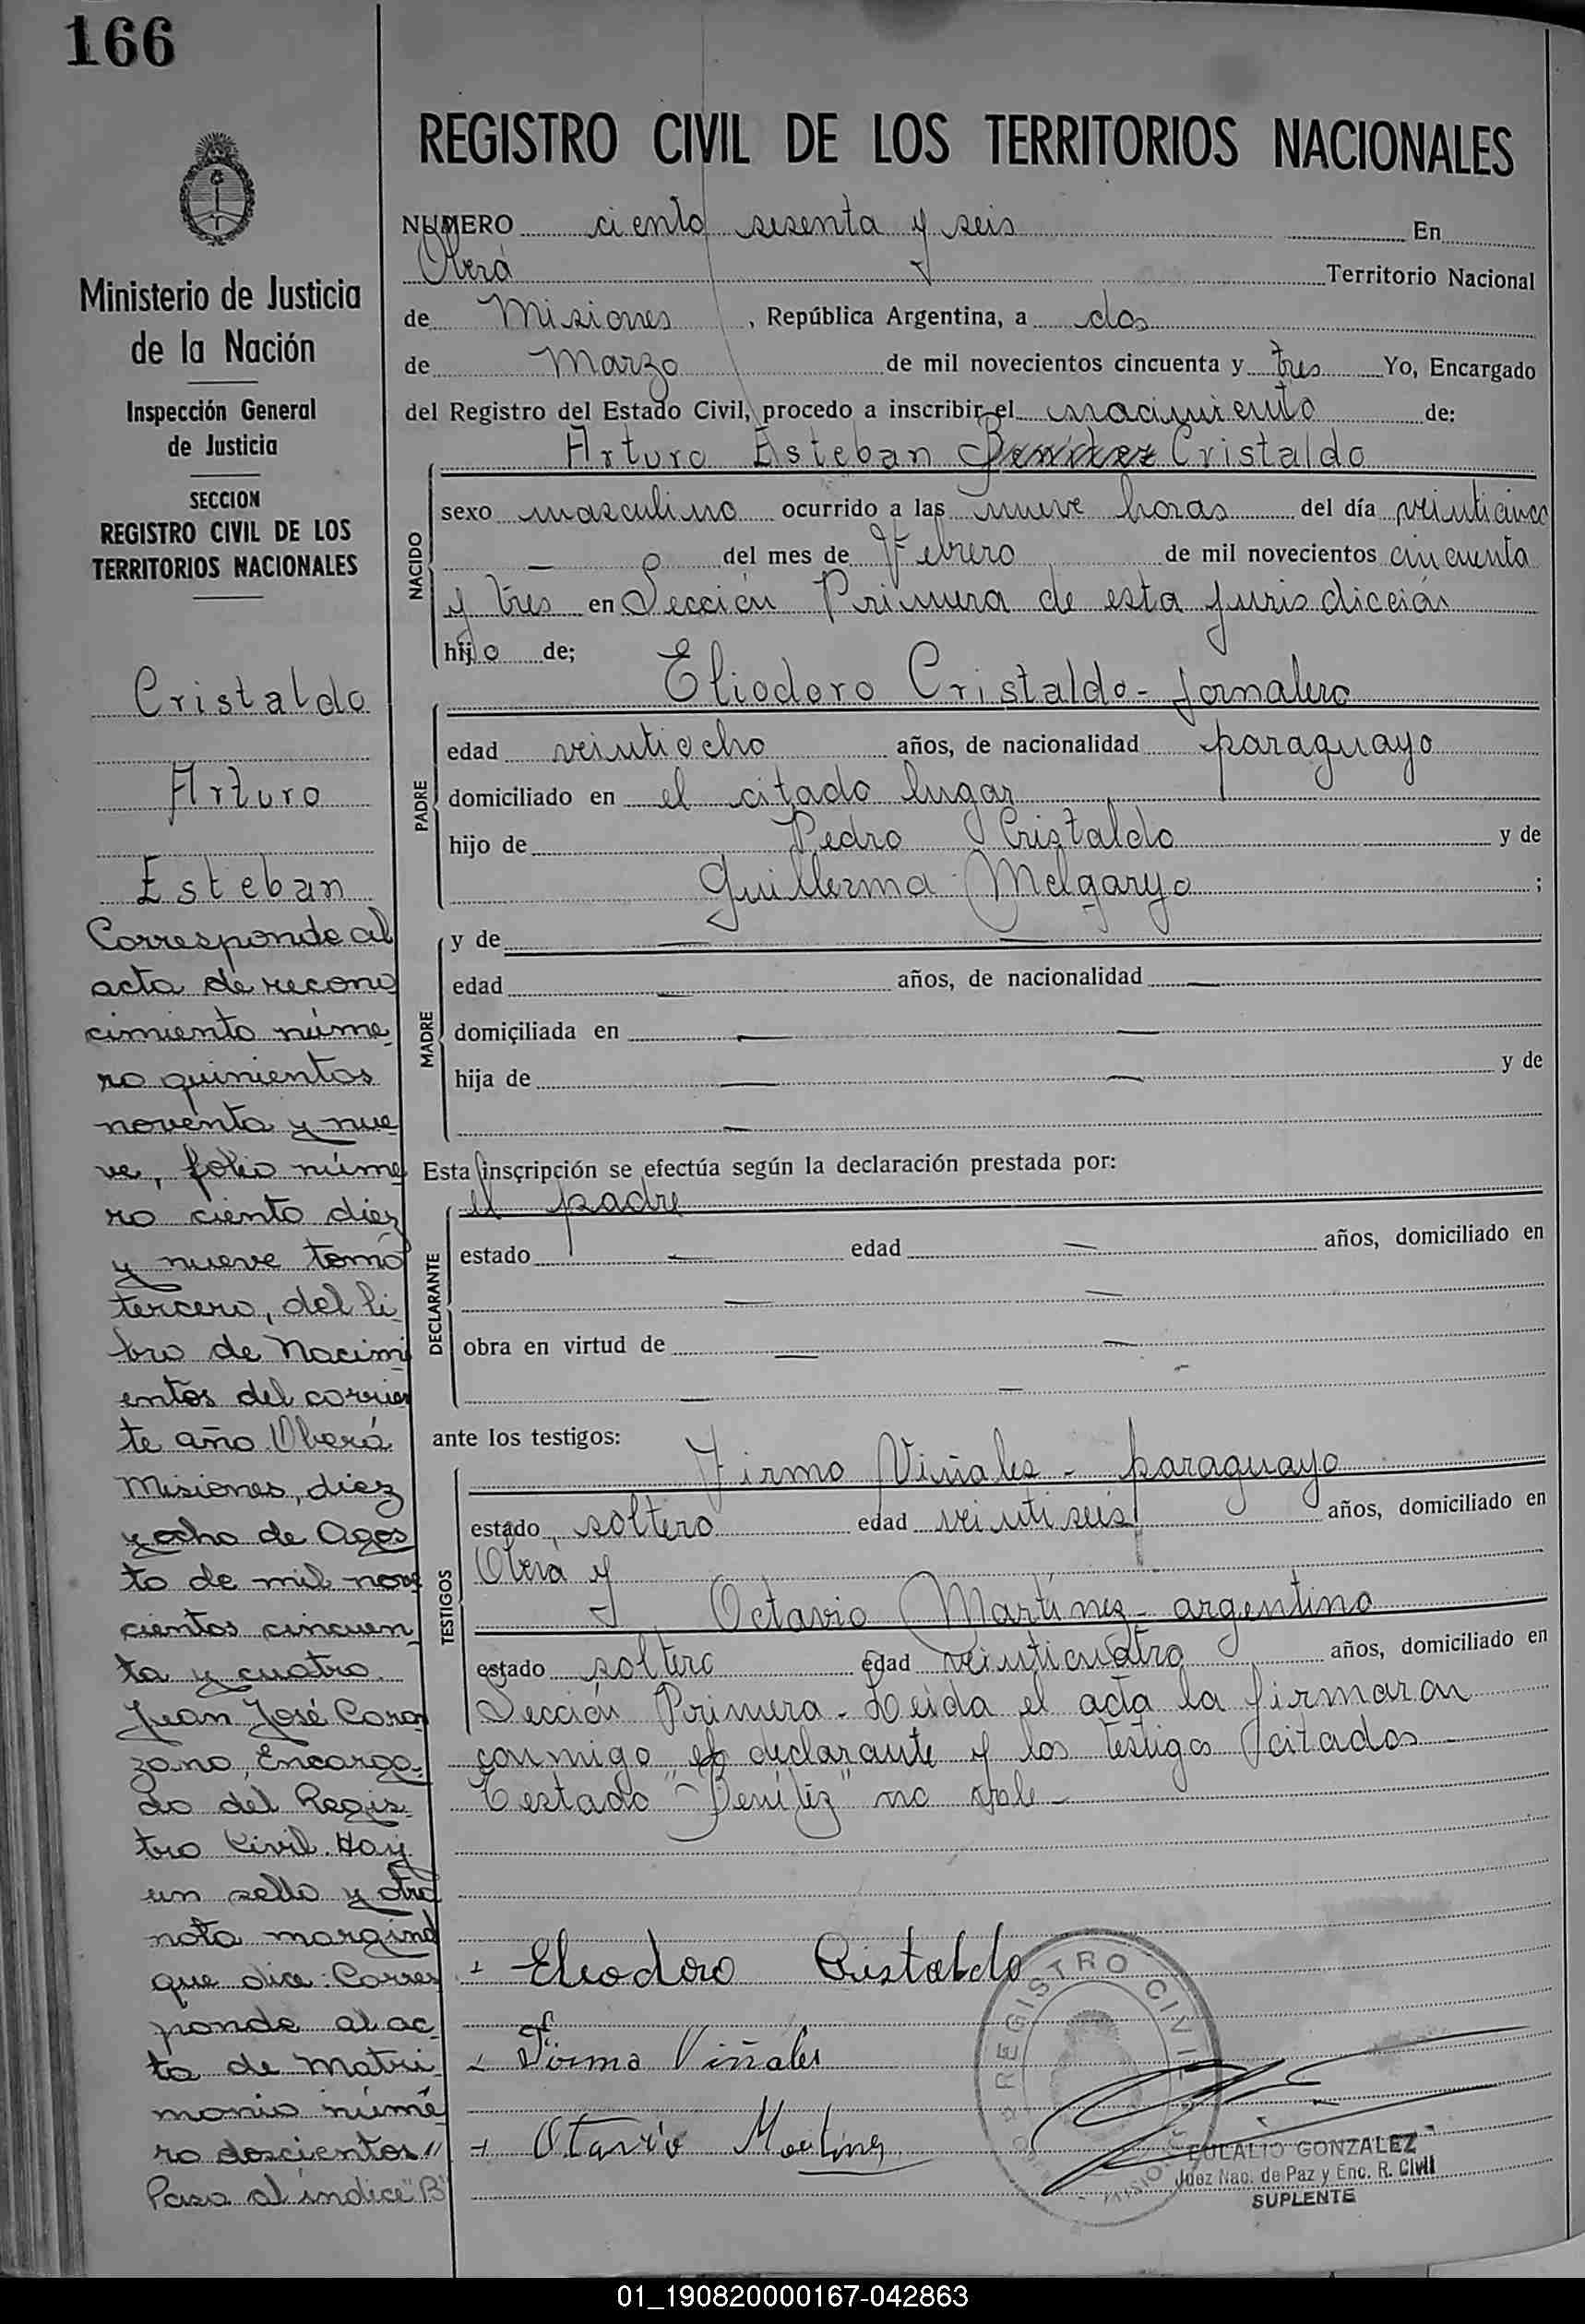 166
Ministerio de Justicia
de la Nación
Inspección General
de Justicia
SECCION
REGISTRO CIVIL DE LOS
TERRITORIOS NACIONALES
Cristaldo
Arturo
Esteban
Corresponde al
acta de recono
cimiento núme
ro quinientos
noventa y nue
ve, folio núme
ro ciento diez
y nueve tomo
tercero, del li
bro de Nacimi
entos del corrien
te año Oberá
Misiones, diez
y ocho de Agos
to de mil nove
cientos cincuen
ta y cuatro.
Juan José Coron
zano, Encarga
do del Regis
tro Civil. Hay
un sello y otra
nota marginal
que dice: Corres
ponde al ac
ta de Matri
monio núme
ro doscientos"
Paso al indice "B"
REGISTRO CIVIL DE LOS TERRITORIOS NACIONALES
NUMERO ciento sesenta y seis En
Oberá Territorio Nacional
de Misiones, República Argentina, a dos
de Marzo de mil novecientos cincuenta y tres Yo, Encargado
del Registro del Estado Civil, procedo a inscribir el nacimiento de:
Arturo Esteban Benitez Cristaldo
NACIDO
sexo masculino ocurrido a las nueve horas del día veinticinco
— del mes de Febrero de mil novecientos cincuenta
y tres en Sección Primera de esta jurisdicción
hijo de;
Eliodoro Cristaldo - jornalero
PADRE
edad veintiocho años, de nacionalidad paraguayo
domiciliado en el citado lugar
hijo de Pedro Cristaldo y de
Guillerma Melgarejo ;
MADRE
y de — —
edad — años, de nacionalidad —
domiciliada en — —
hija de — — y de
—
Esta inscripción se efectúa según la declaración prestada por:
el padre
DECLARANTE
estado — edad — años, domiciliado en
— —
obra en virtud de — —
— — -
ante los testigos:
Firmo Viñales - paraguayo
TESTIGOS
estado soltero edad veintiseis años, domiciliado en
Oberá y
Octavio Martinez - argentino
estado soltero edad veinticuatro años, domiciliado en
Sección Primera - Leida el acta la firmaron
conmigo el declarante y los testigos citados -
Testado "Benítez" no vale -
Eleodoro Cristaldo
Firmo Viñales
Otavio Martinez
REGISTRO CIVIL
MISIONES
EULALIO GONZALEZ
Juez Nac. de Paz y Enc. R. Civil
SUPLENTE
01_190820000167-042863